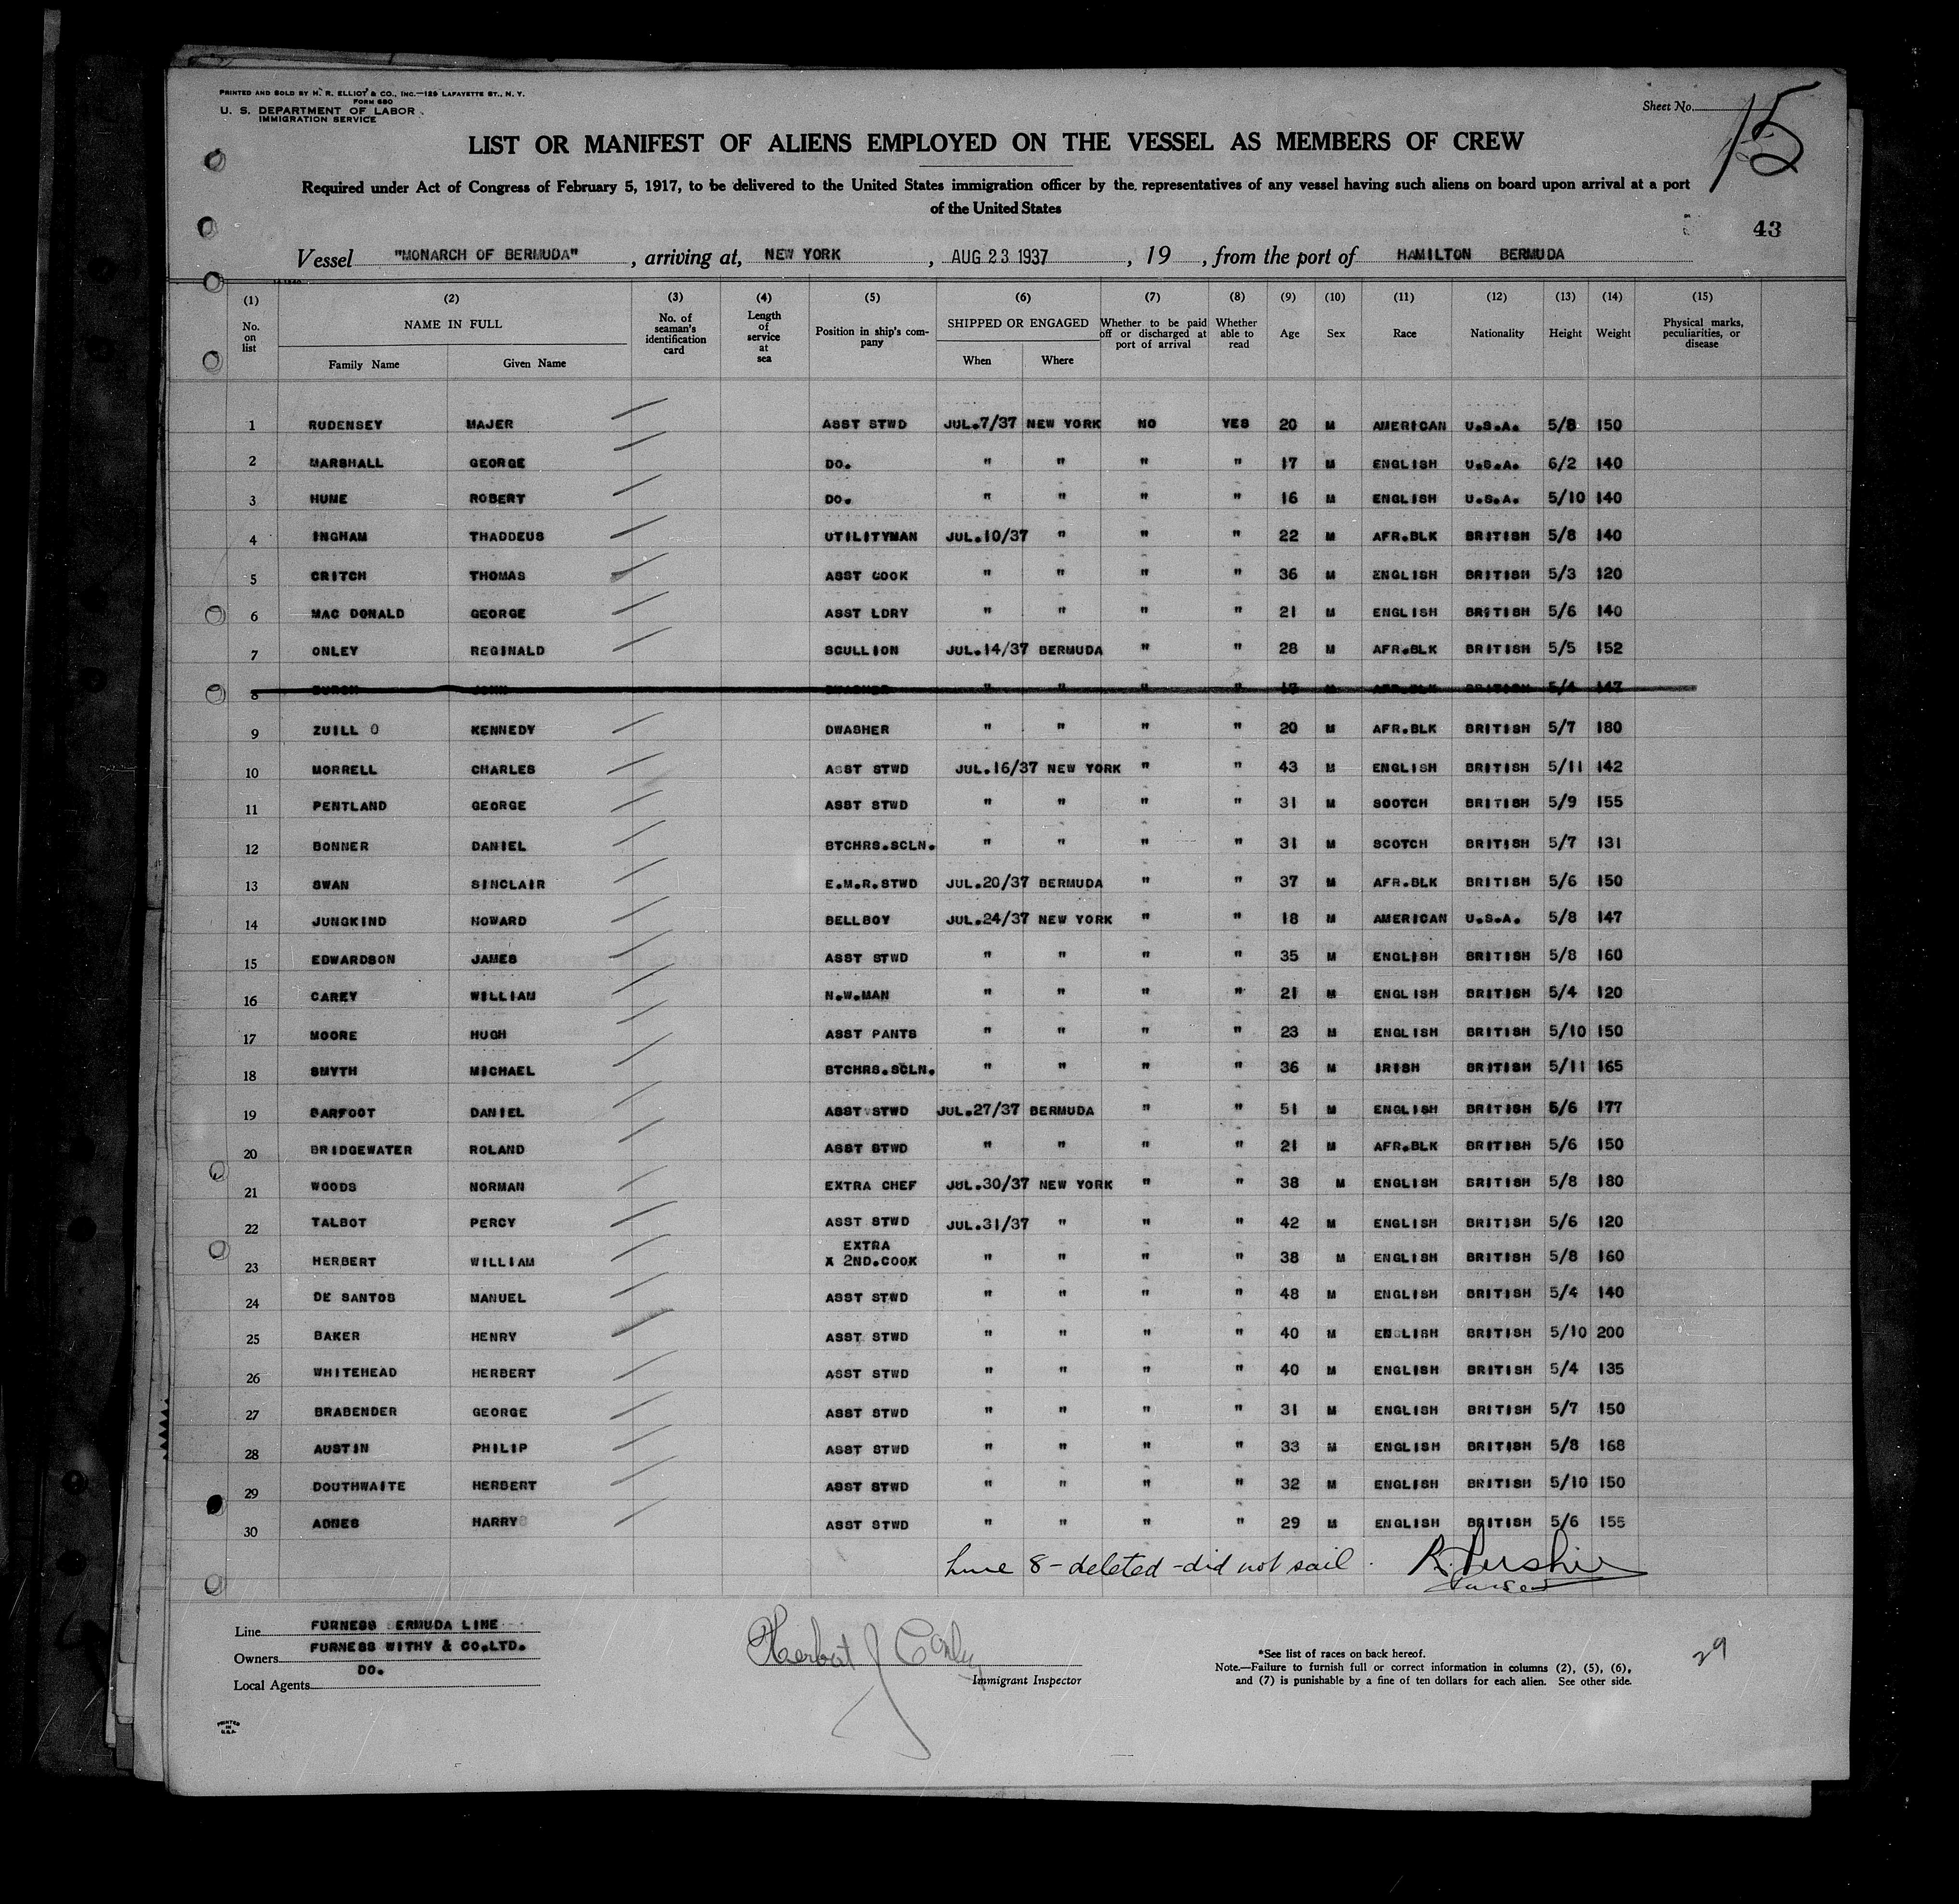 PRINTED AND SOLD BY H. R. ELLIOT & CO., INC.—129 LAFAYETTE ST., N. Y.
FORM 680
U. S. DEPARTMENT OF LABOR
IMMIGRATION SERVICE
Sheet No. 15
LIST OR MANIFEST OF ALIENS EMPLOYED ON THE VESSEL AS MEMBERS OF CREW
Required under Act of Congress of February 5, 1917, to be delivered to the United States immigration officer by the representatives of any vessel having such aliens on board upon arrival at a port
of the United States
43
Vessel "MONARCH OF BERMUDA", arriving at, NEW YORK, AUG 23 1937, 19 , from the port of HAMILTON BERMUDA
(1) (2) (3) (4) (5) (6) (7) (8) (9) (10) (11) (12) (13) (14) (15)
No. on list NAME IN FULL Family Name Given Name No. of seaman's identification card Length of service at sea Position in ship's company SHIPPED OR ENGAGED When Where Whether to be paid off or discharged at port of arrival Whether able to read Age Sex Race Nationality Height Weight Physical marks, peculiarities, or disease
1 RUDENSEY MAJER ASST STWD JUL.7/37 NEW YORK NO YES 20 M AMERICAN U.S.A. 5/8 150
2 MARSHALL GEORGE DO. " " " " 17 M ENGLISH U.S.A. 6/2 140
3 HUME ROBERT DO. " " " " 16 M ENGLISH U.S.A. 5/10 140
4 INGHAM THADDEUS UTILITYMAN JUL.10/37 " " " 22 M AFR.BLK BRITISH 5/8 140
5 CRITCH THOMAS ASST COOK " " " " 36 M ENGLISH BRITISH 5/3 120
6 MAC DONALD GEORGE ASST LDRY " " " " 21 M ENGLISH BRITISH 5/6 140
7 ONLEY REGINALD SCULLION JUL.14/37 BERMUDA " " 28 M AFR.BLK BRITISH 5/5 152
8 JOHN DWASHER " " " " 17 M AFR.BLK BRITISH 5/4 147
9 ZUILL KENNEDY DWASHER " " " " 20 M AFR.BLK BRITISH 5/7 180
10 MORRELL CHARLES ASST STWD JUL.16/37 NEW YORK " " 43 M ENGLISH BRITISH 5/11 142
11 PENTLAND GEORGE ASST STWD " " " " 31 M SCOTCH BRITISH 5/9 155
12 BONNER DANIEL BTCHRS.SCLN. " " " " 31 M SCOTCH BRITISH 5/7 131
13 SWAN SINCLAIR E.M.R.STWD JUL.20/37 BERMUDA " " 37 M AFR.BLK BRITISH 5/6 150
14 JUNGKIND HOWARD BELLBOY JUL.24/37 NEW YORK " " 18 M AMERICAN U.S.A. 5/8 147
15 EDWARDSON JAMES ASST STWD " " " " 35 M ENGLISH BRITISH 5/8 160
16 CAREY WILLIAM N.W.MAN " " " " 21 M ENGLISH BRITISH 5/4 120
17 MOORE HUGH ASST PANTS " " " " 23 M ENGLISH BRITISH 5/10 150
18 SMYTH MICHAEL BTCHRS.SCLN. " " " " 36 M IRISH BRITISH 5/11 165
19 BARFOOT DANIEL ASST STWD JUL.27/37 BERMUDA " " 51 M ENGLISH BRITISH 5/6 177
20 BRIDGEWATER ROLAND ASST STWD " " " " 21 M AFR.BLK BRITISH 5/6 150
21 WOODS NORMAN EXTRA CHEF JUL.30/37 NEW YORK " " 38 M ENGLISH BRITISH 5/8 180
22 TALBOT PERCY ASST STWD JUL.31/37 " " " 42 M ENGLISH BRITISH 5/6 120
23 HERBERT WILLIAM EXTRA X 2ND.COOK " " " " 38 M ENGLISH BRITISH 5/8 160
24 DE SANTOS MANUEL ASST STWD " " " " 48 M ENGLISH BRITISH 5/4 140
25 BAKER HENRY ASST STWD " " " " 40 M ENGLISH BRITISH 5/10 200
26 WHITEHEAD HERBERT ASST STWD " " " " 40 M ENGLISH BRITISH 5/4 135
27 BRABENDER GEORGE ASST STWD " " " " 31 M ENGLISH BRITISH 5/7 150
28 AUSTIN PHILIP ASST STWD " " " " 33 M ENGLISH BRITISH 5/8 168
29 DOUTHWAITE HERBERT ASST STWD " " " " 32 M ENGLISH BRITISH 5/10 150
30 HARRY ASST STWD " " " " 29 M ENGLISH BRITISH 5/6 155
Line 8 - deleted - did not sail.
Purser
Line FURNESS ERMUDA LINE
Owners FURNESS WITHY & CO.LTD.
Local Agents DO.
Herbert J
Immigrant Inspector
*See list of races on back hereof.
Note.—Failure to furnish full or correct information in columns (2), (5), (6), and (7) is punishable by a fine of ten dollars for each alien. See other side.
29
PRINTED IN U.S.A.